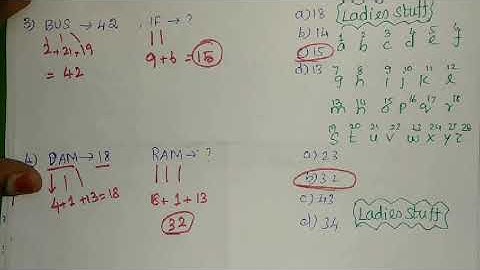 3) BUS → 42
2+21+19
= 42
IF → ?
9+6 = 15
a) 18
b) 14
c) 15
d) 13
Ladies Stuff
1 2 3 4 5 6
a b c d e f
7 8 9 10 11 12
g h i j k l
13 14 15 16 17 18
m n o p q r
19 20 21 22 23 24 25 26
s t u v w x y z
4) DAM → 18
4+1+13=18
RAM → ?
18+1+13
32
a) 23
b) 32
c) 43
d) 34
Ladies Stuff